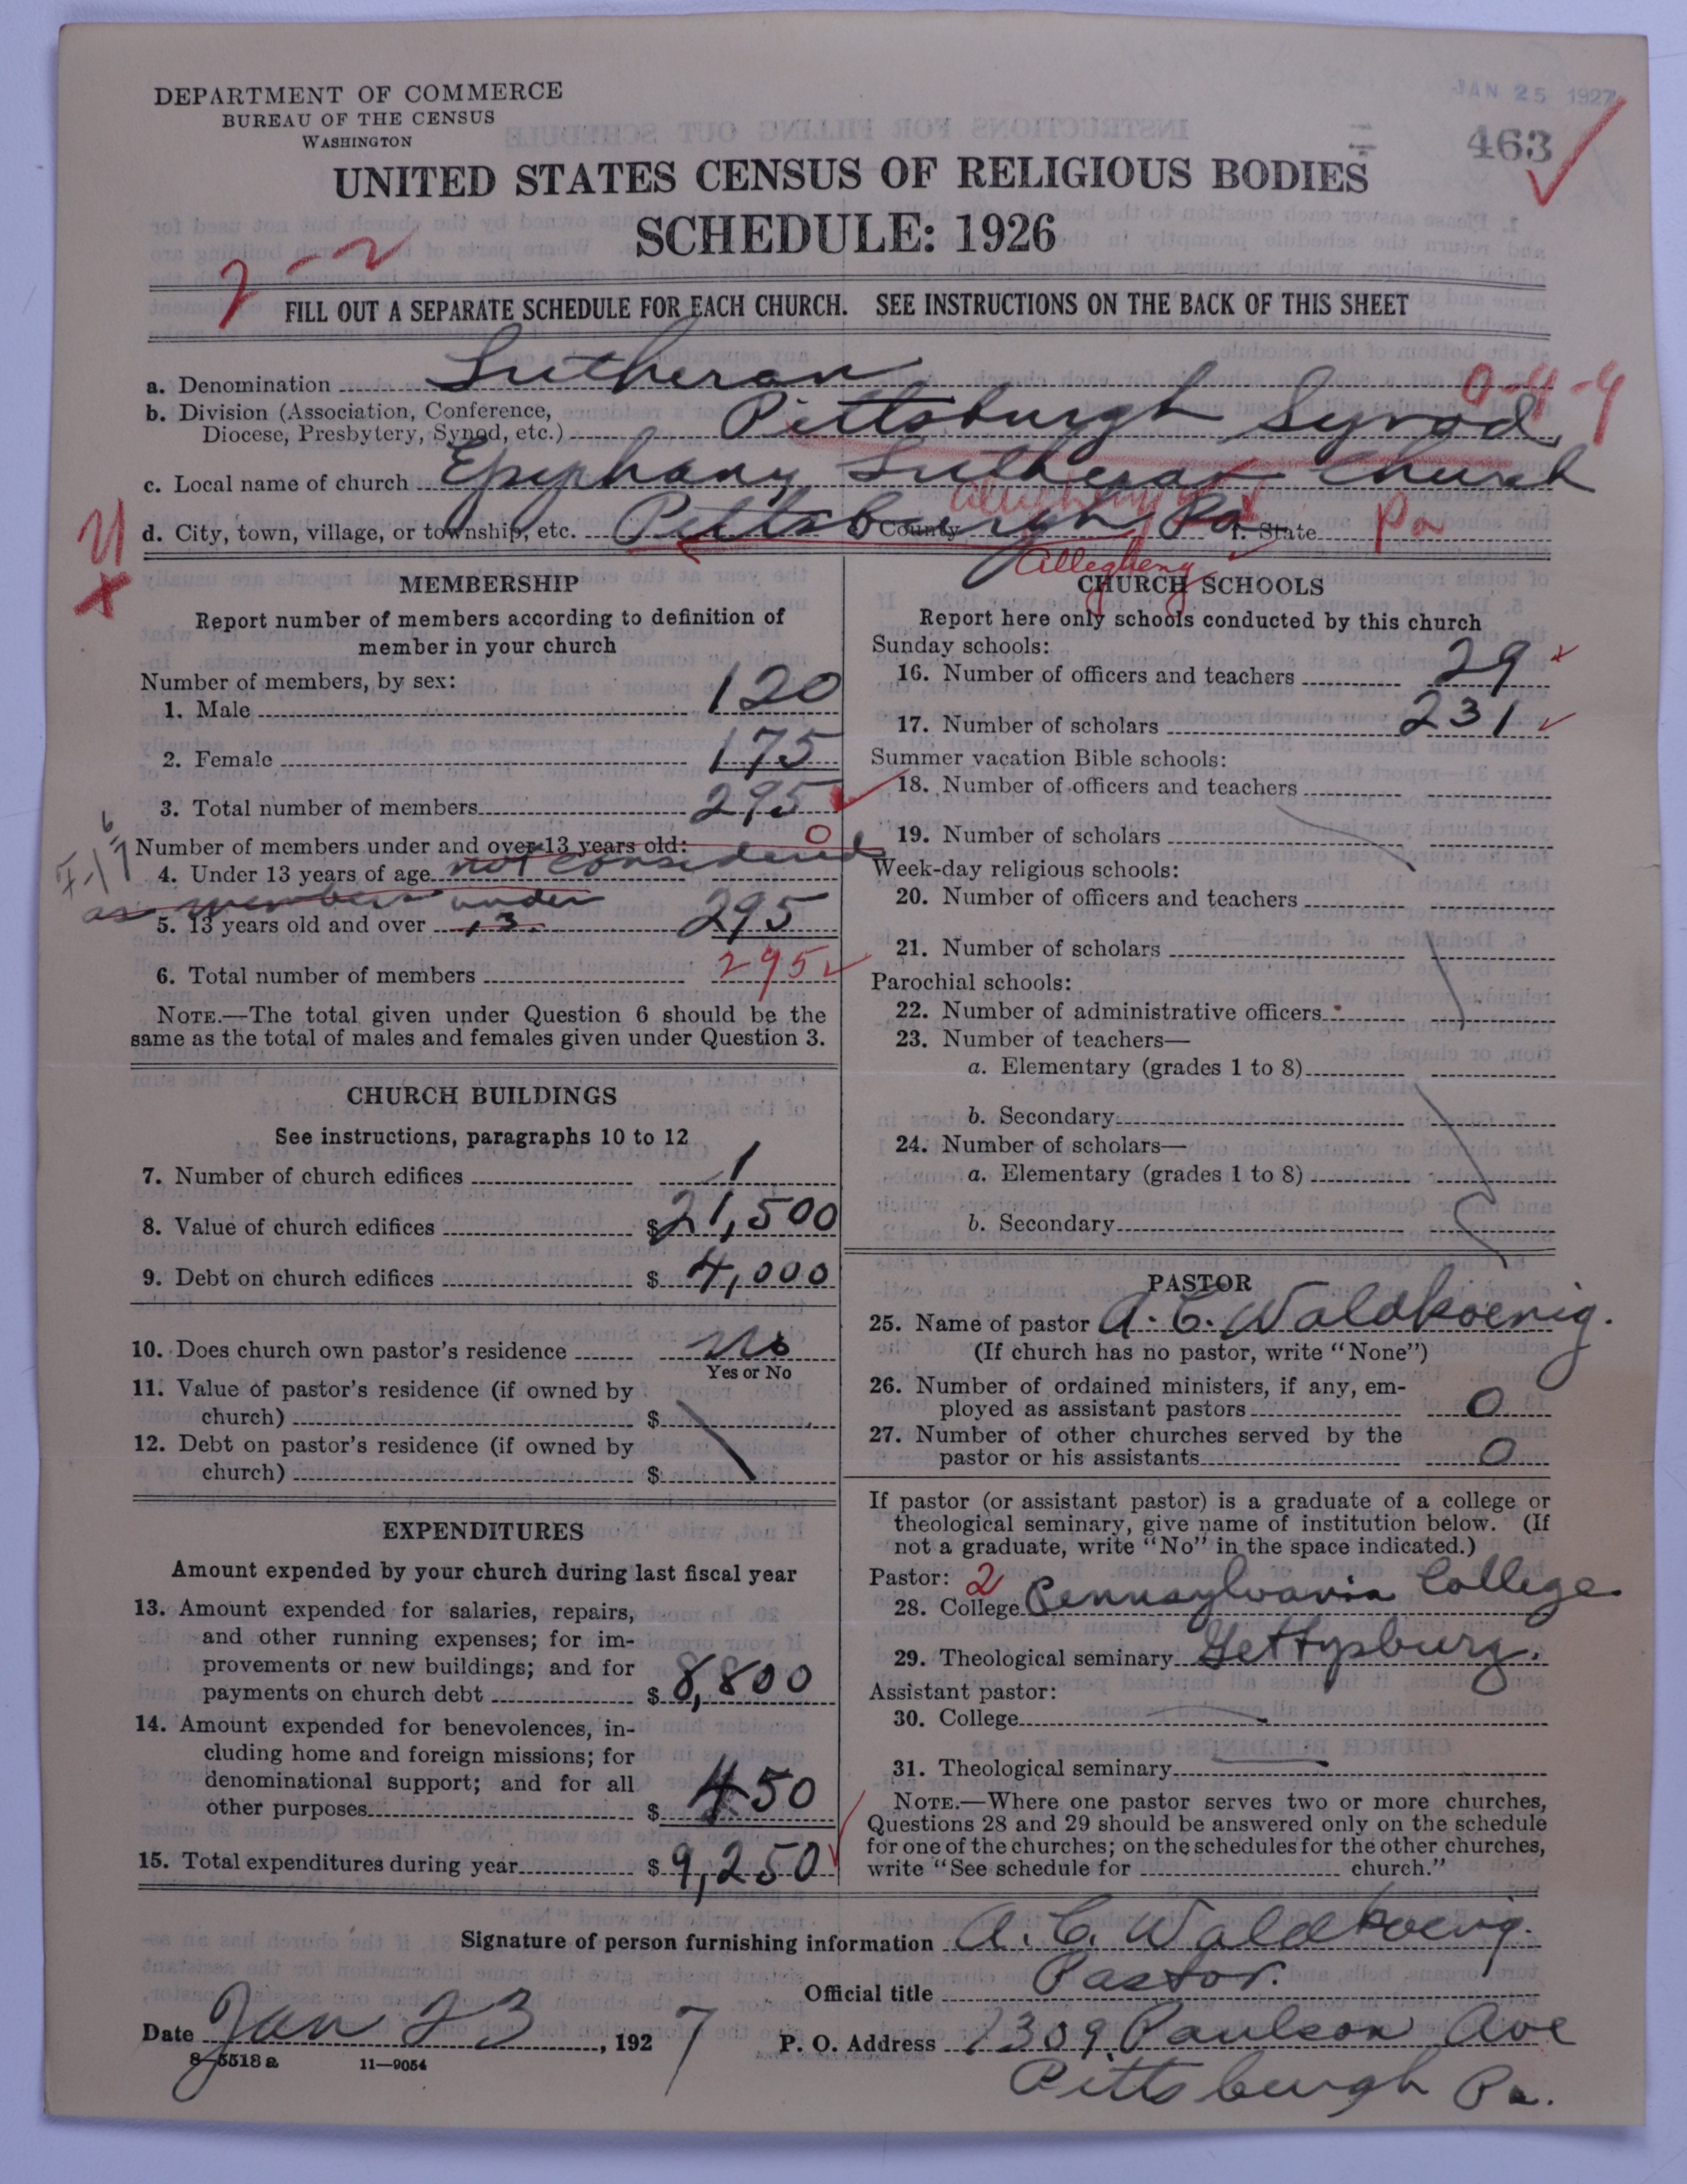 DEPARTMENT OF COMMERCE
BUREAU OF THE CENSUS
WASHINGTON
JAN 25 1927
463
UNITED STATES CENSUS OF RELIGIOUS BODIES
SCHEDULE: 1926
7-2
FILL OUT A SEPARATE SCHEDULE FOR EACH CHURCH. SEE INSTRUCTIONS ON THE BACK OF THIS SHEET
a. Denomination Lutheran
0-4-4
b. Division (Association, Conference,
Diocese, Presbytery, Synod, etc.) Pittsburgh Synod,
c. Local name of church Epiphany Lutheran Church
Allegheny
d. City, town, village, or township, etc. Pittsburgh Pa County f. State Pa
Allegheny
MEMBERSHIP
Report number of members according to definition of
member in your church
Number of members, by sex:
1. Male 120
2. Female 175
3. Total number of members 295
Number of members under and over 13 years old: 0
4. Under 13 years of age not considered
as members under
5. 13 years old and over 13. 295
6. Total number of members 295
NOTE.—The total given under Question 6 should be the
same as the total of males and females given under Question 3.
CHURCH BUILDINGS
See instructions, paragraphs 10 to 12
7. Number of church edifices 1
8. Value of church edifices $21,500
9. Debt on church edifices $4,000
10. Does church own pastor's residence No
Yes or No
11. Value of pastor's residence (if owned by
church) $
12. Debt on pastor's residence (if owned by
church) $
EXPENDITURES
Amount expended by your church during last fiscal year
13. Amount expended for salaries, repairs,
and other running expenses; for im-
provements or new buildings; and for
payments on church debt $8,800
14. Amount expended for benevolences, in-
cluding home and foreign missions; for
denominational support; and for all
other purposes $450
15. Total expenditures during year $9,250
CHURCH SCHOOLS
Report here only schools conducted by this church
Sunday schools:
16. Number of officers and teachers 29
17. Number of scholars 231
Summer vacation Bible schools:
18. Number of officers and teachers
19. Number of scholars
Week-day religious schools:
20. Number of officers and teachers
21. Number of scholars
Parochial schools:
22. Number of administrative officers
23. Number of teachers—
a. Elementary (grades 1 to 8)
b. Secondary
24. Number of scholars—
a. Elementary (grades 1 to 8)
b. Secondary
PASTOR
25. Name of pastor A. C. Waldkoenig.
(If church has no pastor, write "None")
26. Number of ordained ministers, if any, em-
ployed as assistant pastors 0
27. Number of other churches served by the
pastor or his assistants 0
If pastor (or assistant pastor) is a graduate of a college or
theological seminary, give name of institution below. (If
not a graduate, write "No" in the space indicated.)
Pastor: 2
28. College Pennsylvania College
29. Theological seminary Gettysburg.
Assistant pastor:
30. College
31. Theological seminary
NOTE.—Where one pastor serves two or more churches,
Questions 28 and 29 should be answered only on the schedule
for one of the churches; on the schedules for the other churches,
write "See schedule for church."
Signature of person furnishing information A. C. Waldkoenig.
Official title Pastor.
Date Jan 23, 1927 P. O. Address 1309 Paulson Ave
8-5518 a 11—9054
Pittsburgh Pa.